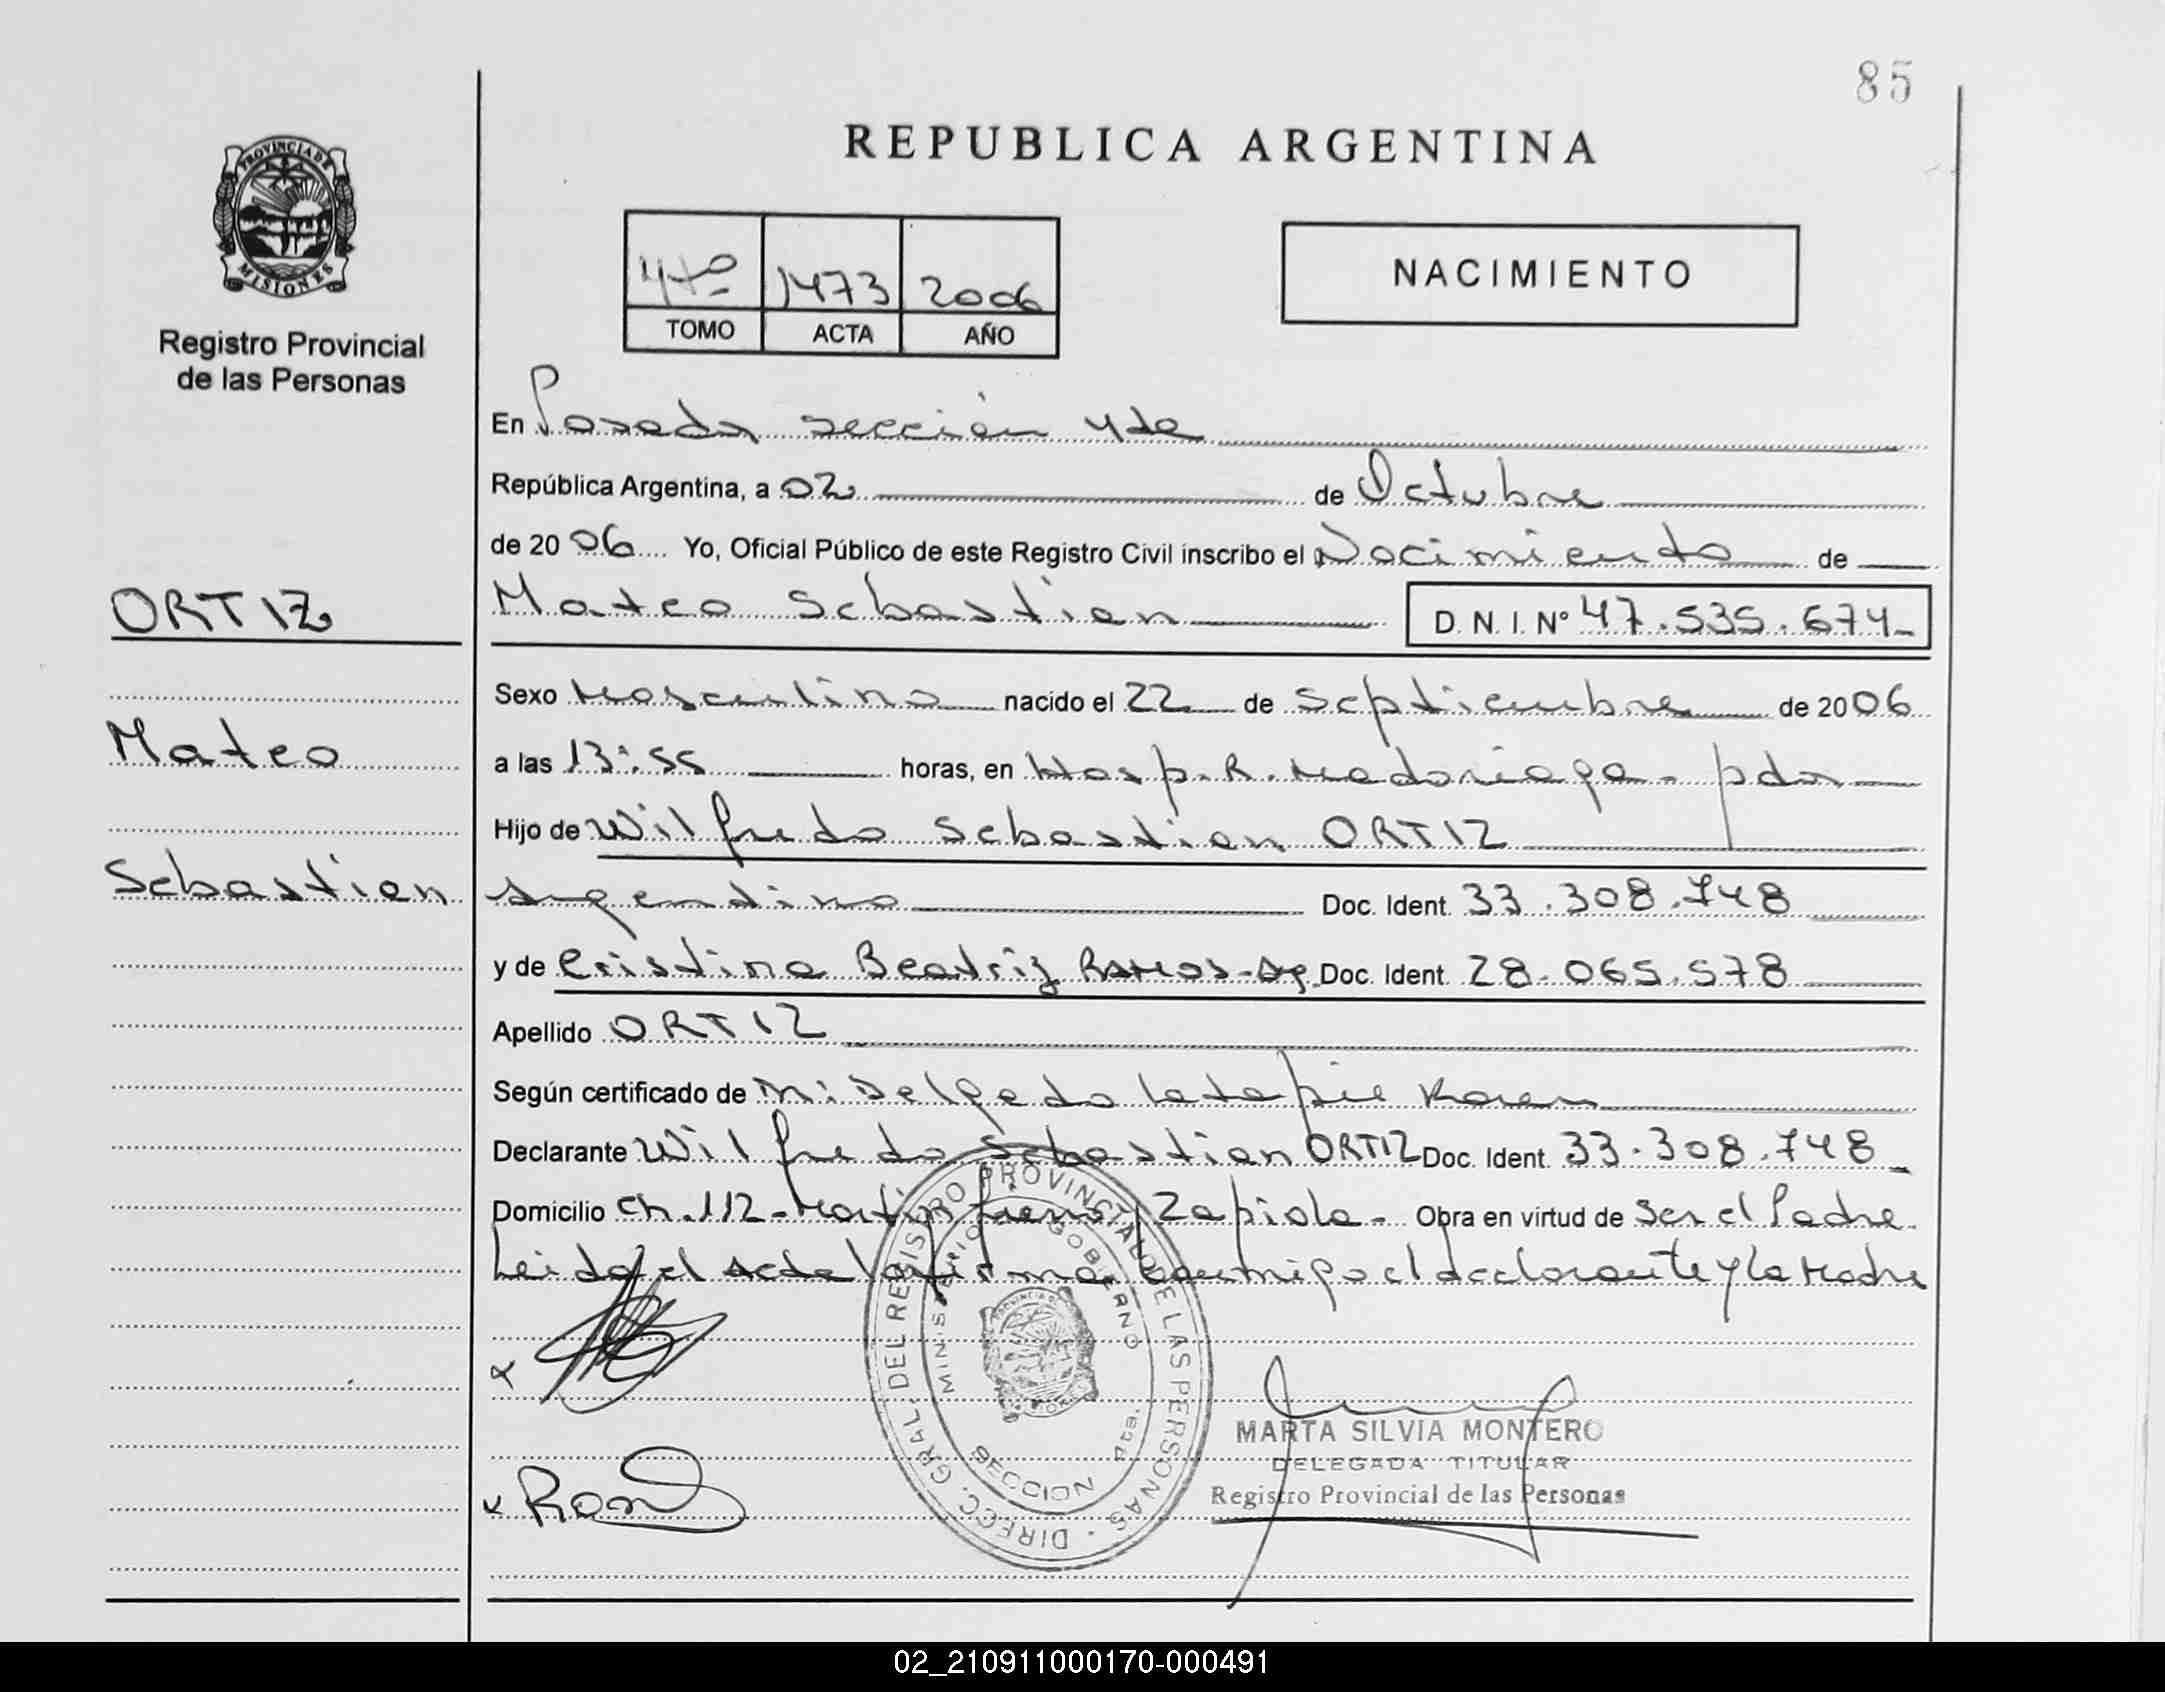 85
REPUBLICA ARGENTINA
PROVINCIA DE
MISIONES
Registro Provincial
de las Personas
4to 1473 2006
TOMO ACTA AÑO
NACIMIENTO
En Posadas sección 4ta
República Argentina, a 02 de Octubre
de 2006 Yo, Oficial Público de este Registro Civil inscribo el Nacimiento de
ORTIZ
Mateo Sebastian D. N. I. Nº 47.535.674
Sexo Masculino nacido el 22 de Septiembre de 2006
Mateo
a las 13:55 horas, en Hosp. R. Madariaga - pdas
Hijo de Wilfredo Sebastian ORTIZ
Sebastian
Argentino Doc. Ident. 33.308.748
y de Cristina Beatriz RAMOS - Ag. Doc. Ident. 28.065.578
Apellido ORTIZ
Según certificado de Delgado Karen
Declarante Wilfredo Sebastian ORTIZ Doc. Ident. 33.308.748
Domicilio Ch. 112 - Martin y Zapiola - Obra en virtud de Ser el Padre
Leida el Acta la firma conmigo el declarante y la Madre
DIRECC. GRAL. DEL REGISTRO PROVINCIAL DE LAS PERSONAS
MINISTERIO GOBIERNO
SECCION 4ta.
MARTA SILVIA MONTERO
DELEGADA TITULAR
Registro Provincial de las Personas
02_210911000170-000491